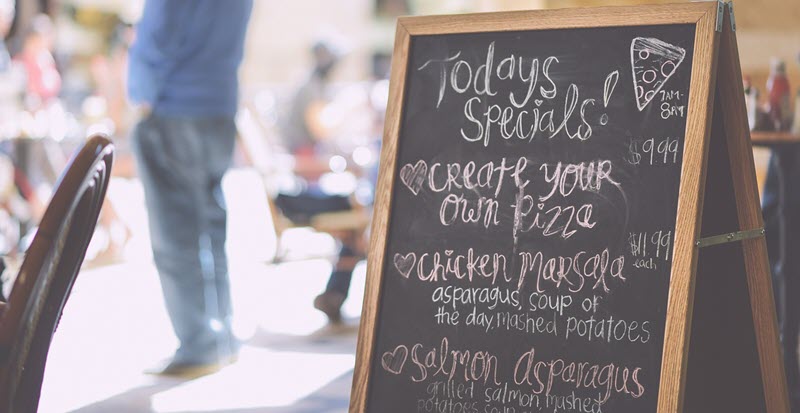 Todays
Specials!
7AM-
8PM
$9.99
Create your
own Pizza
$11.99
each
Chicken Marsala
asparagus, soup of
the day, mashed potatoes
Salmon Asparagus
grilled salmon, mashed
potatoes, soup